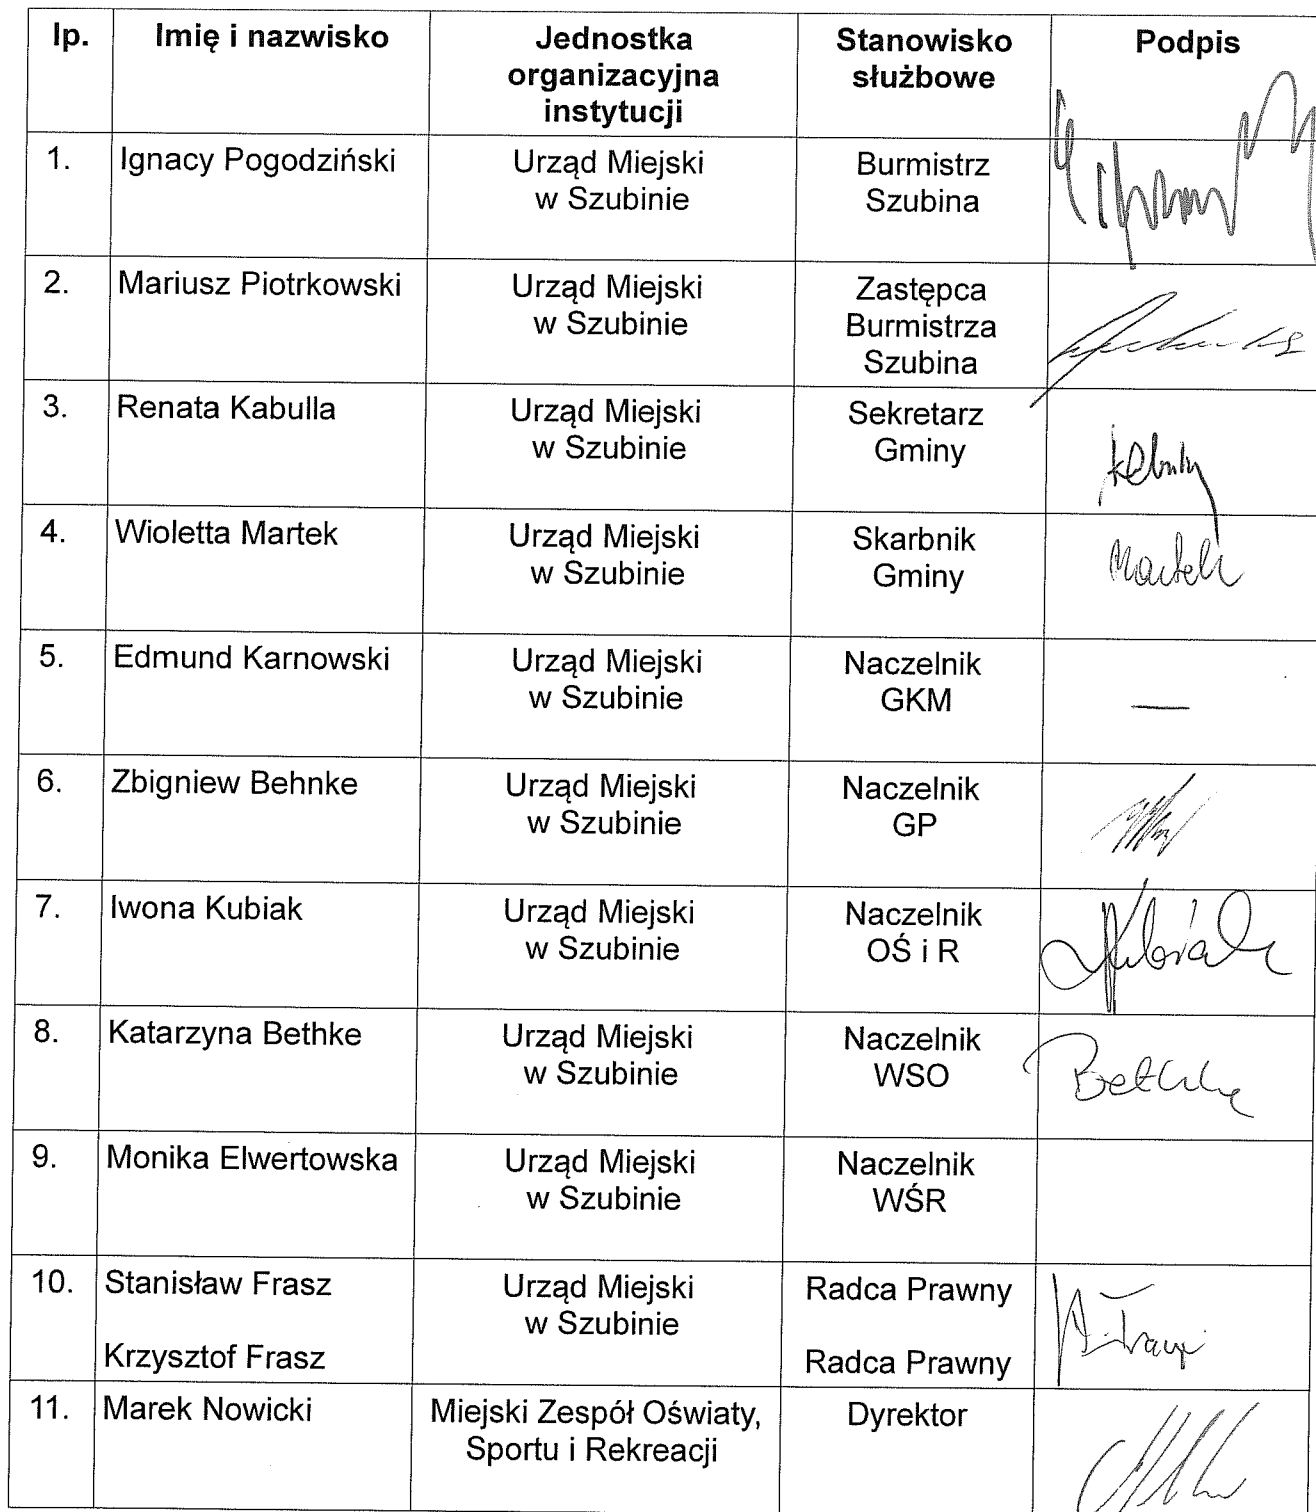 lp.
Imię i nazwisko
Jednostka
organizacyjna
instytucji
Stanowisko
służbowe
Podpis
1.
Ignacy Pogodziński
Urząd Miejski
w Szubinie
Burmistrz
Szubina
2.
Mariusz Piotrkowski
Urząd Miejski
w Szubinie
Zastępca
Burmistrza
Szubina
3.
Renata Kabulla
Urząd Miejski
w Szubinie
Sekretarz
Gminy
4.
Wioletta Martek
Urząd Miejski
w Szubinie
Skarbnik
Gminy
Martek
5.
Edmund Karnowski
Urząd Miejski
w Szubinie
Naczelnik
GKM
—
6.
Zbigniew Behnke
Urząd Miejski
w Szubinie
Naczelnik
GP
7.
Iwona Kubiak
Urząd Miejski
w Szubinie
Naczelnik
OŚ i R
Kubiak
8.
Katarzyna Bethke
Urząd Miejski
w Szubinie
Naczelnik
WSO
Bethke
9.
Monika Elwertowska
Urząd Miejski
w Szubinie
Naczelnik
WŚR
10.
Stanisław Frasz
Krzysztof Frasz
Urząd Miejski
w Szubinie
Radca Prawny
Radca Prawny
11.
Marek Nowicki
Miejski Zespół Oświaty,
Sportu i Rekreacji
Dyrektor